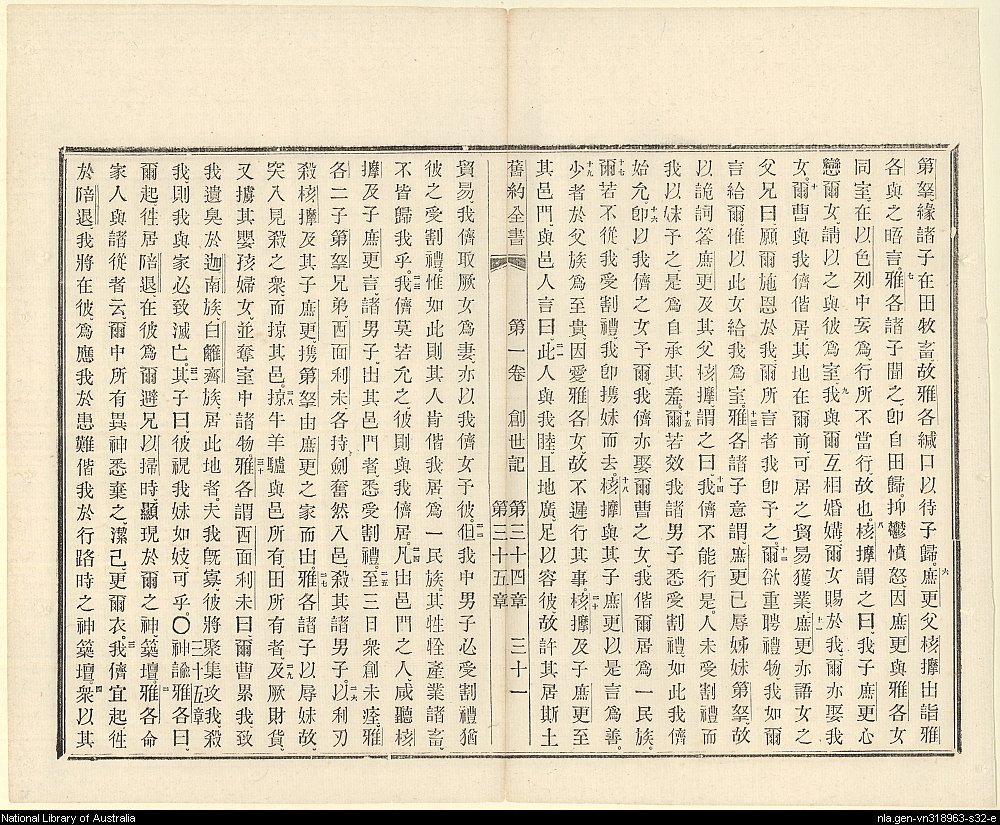 第拏、緣諸子在田牧畜、故雅各緘口以待子歸。六庶更父核摩出詣雅
各與之晤言、七雅各諸子聞之、卽自田歸、抑鬱憤怒、因庶更與雅各女
同室、在以色列中妄爲、行所不當行故也。八核摩謂之曰、我子庶更心
戀爾女、請以之與彼爲室、九我與爾互相婚媾、爾女賜於我、爾亦娶我
女。十爾曹與我儕偕居、其地在爾前、可居之貿易獲業。十一庶更亦語女之
父兄曰、願爾施恩於我、爾所言者我卽予之。十二爾欲重聘禮物、我如爾
言給爾、惟以此女給我爲室。十三雅各諸子意謂、庶更已辱姊妹第拏、故
以詭詞答庶更及其父核摩、謂之曰、十四我儕不能行是。人未受割禮而
我以妹予之、是爲自承其羞、十五爾若效我諸男子悉受割禮如此、我儕
始允、十六卽以我儕之女予爾、我儕亦娶爾曹之女、我偕爾居爲一民族。
十七爾若不從我受割禮、我卽携妹而去。十八核摩與其子庶更以是言爲善。
十九少者於父族爲至貴、因愛雅各女、故不遲行其事。二十核摩及子庶更至
其邑門、與邑人言曰、二一此人與我睦、且地廣足以容彼、故許其居斯土
舊約全書 第一卷 創世記 第三十四章 第三十五章 三十一
貿易、我儕取厥女爲妻、亦以我儕女予彼。二二但我中男子必受割禮、猶
彼之受割禮。惟如此、則其人肯偕我居、爲一民族。其牲牷產業諸畜、
不皆歸我乎。二三我儕莫若允之、彼則與我儕居。二四凡出邑門之人、咸聽核
摩及子庶更言、諸男子、由其邑門者、悉受割禮。二五至三日、衆創未痊、雅
各二子、第拏兄弟、西面利未各持劍、奮然入邑、殺其諸男子。二六以利刃
殺核摩及其子庶更、携第拏由庶更之家而出。二七雅各諸子以辱妹故、
突入見殺之衆、而掠其邑。二八掠牛羊驢與邑所有、田所有者、二九及厥財貨、
又擄其嬰孩婦女、並奪室中諸物。三十雅各謂西面利未曰、爾曹累我、致
我遺臭於迦南族、白籬齊族居此地者。夫我旣寡、彼將聚集攻我、殺
我、則我與家必致滅亡。三一其子曰、彼視我妹如妓、可乎。〇三十五章神諭雅各曰、
爾起往居陪退、在彼爲爾避兄以掃時、顯現於爾之神築壇。二雅各命
家人與諸從者云、爾中所有異神悉棄之、潔己更爾衣。三我儕宜起往
於陪退、我將在彼爲應我於患難、偕我於行路時之神築壇。四衆以其
National Library of Australia
nla.gen-vn318963-s32-e